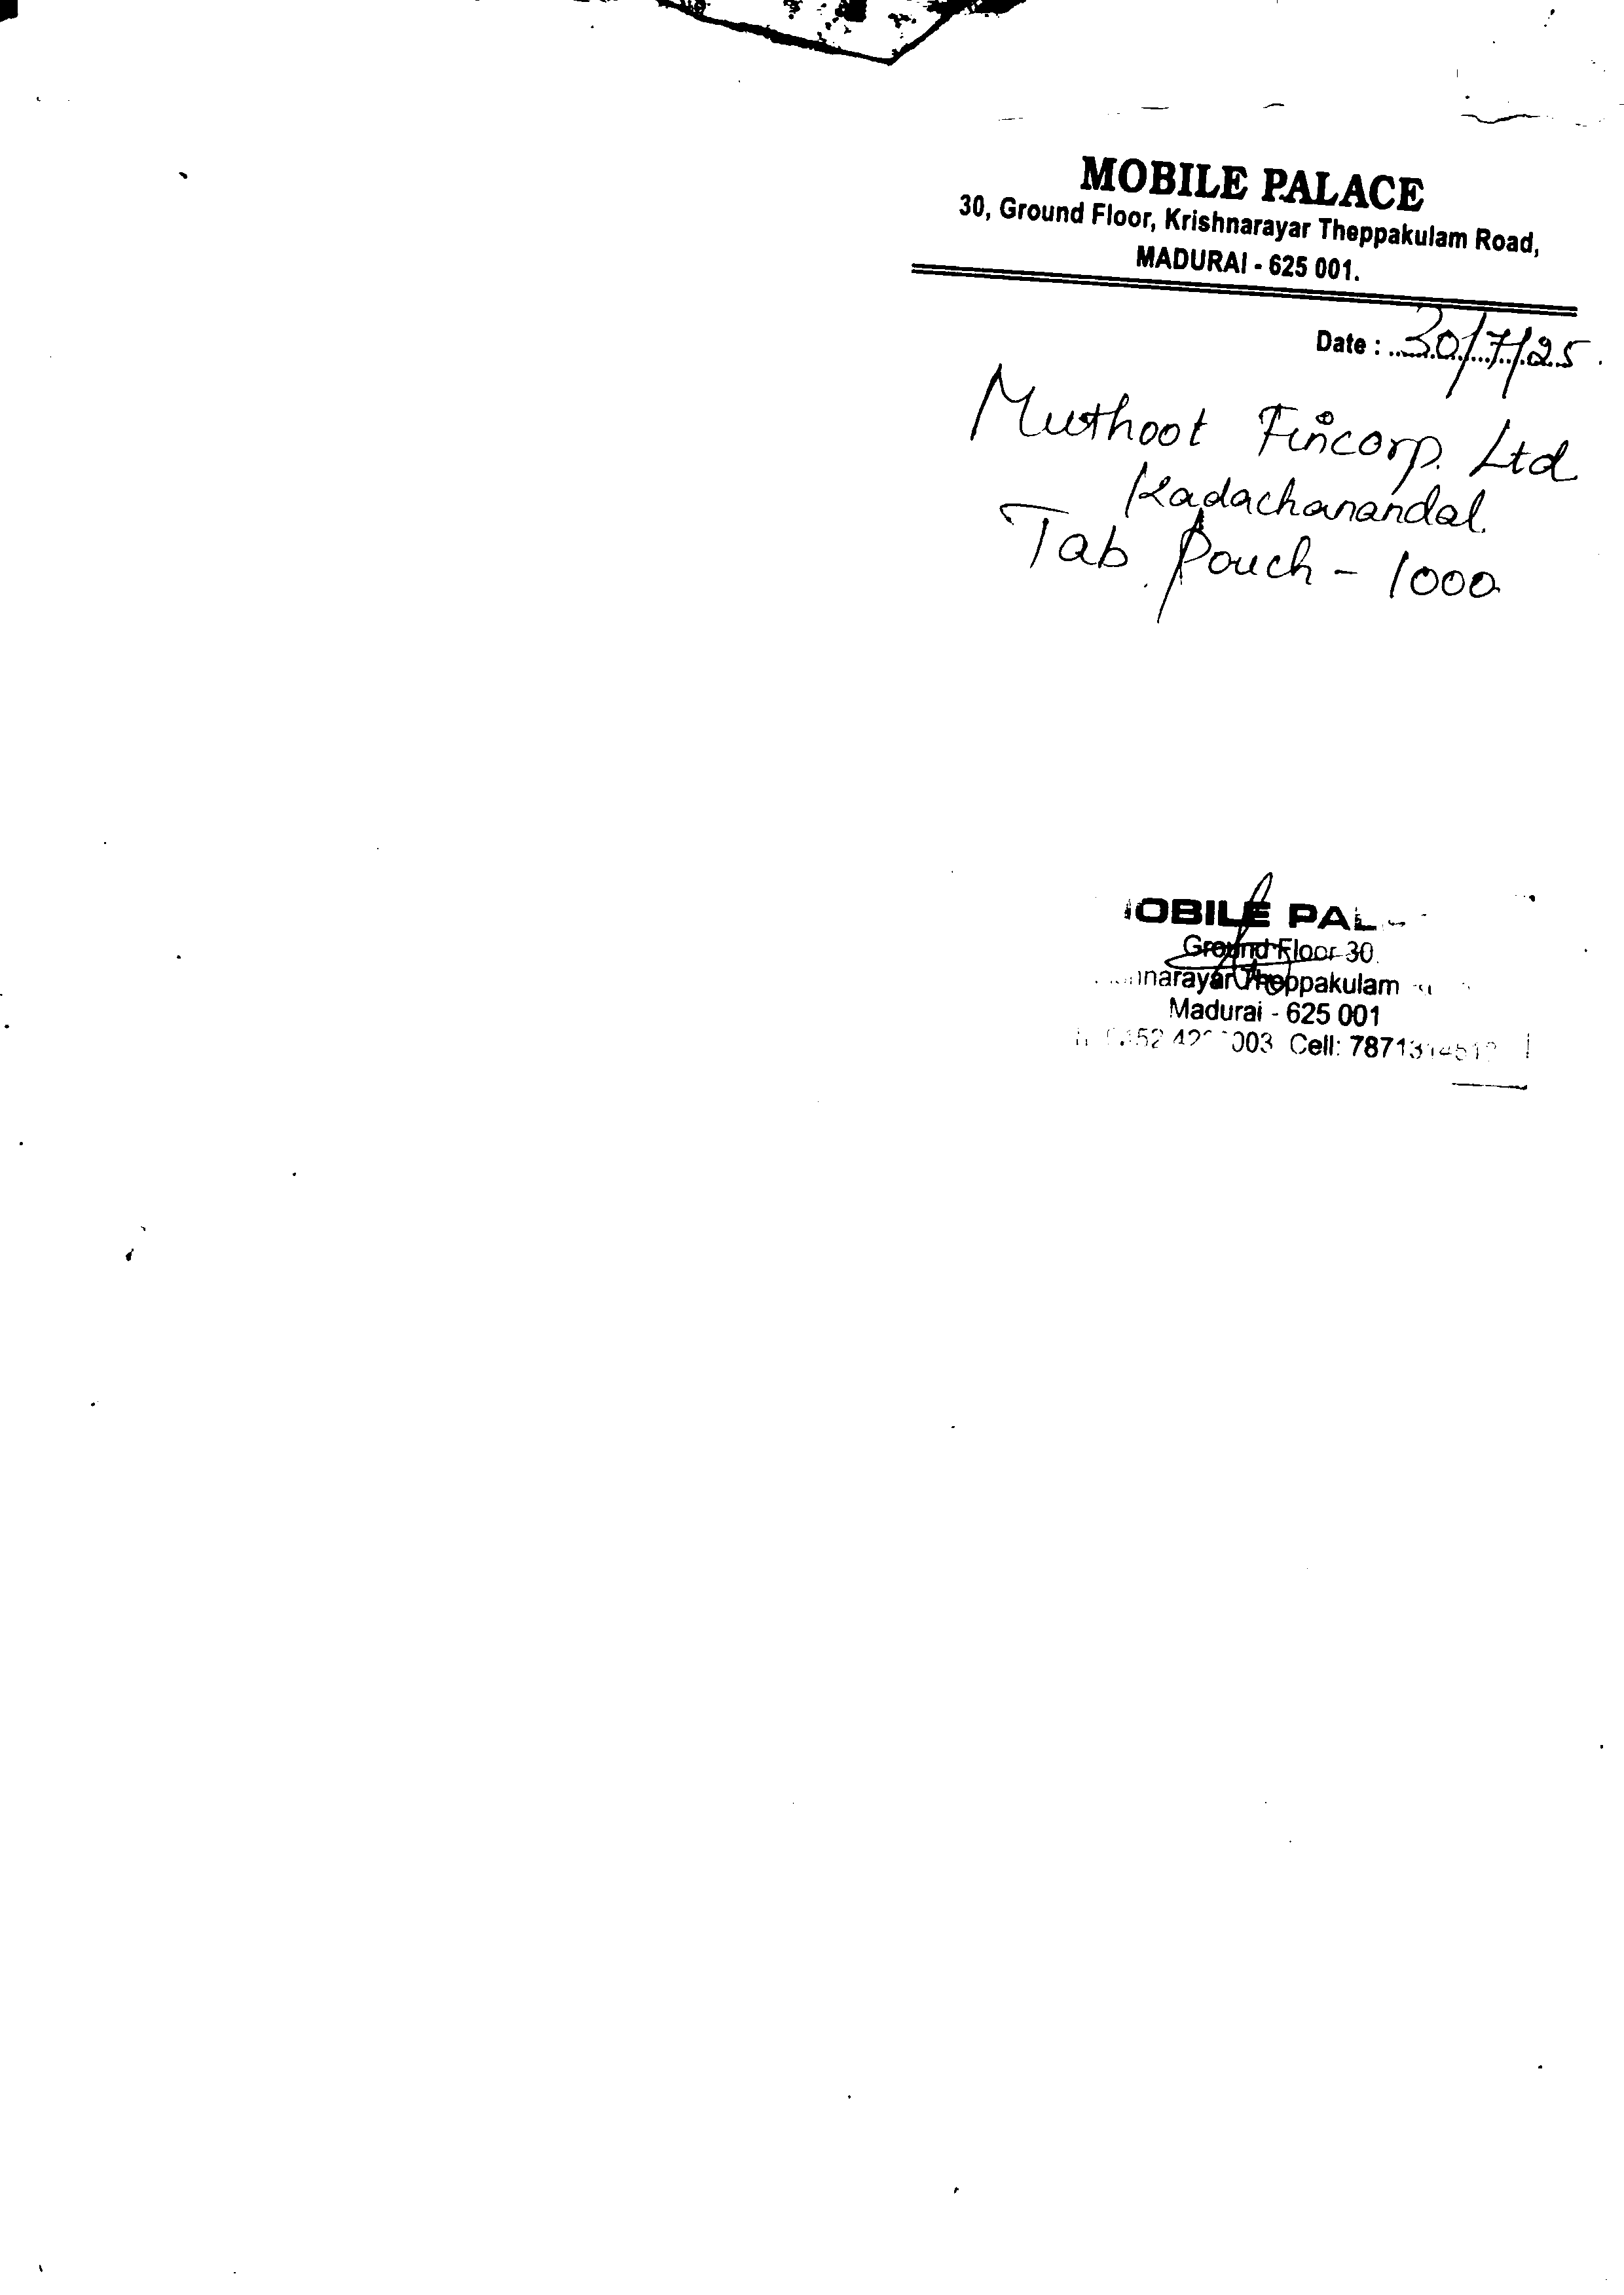 MOBILE PALACE
30, Ground Floor, Krishnarayar Theppakulam Road,
MADURAI - 625 001.
Date : 30/7/25
Muthoot Fincorp. Ltd
Kadachanandal.
Tab Pouch - 1000
Ground Floor 30
Theppakulam
Madurai - 625 001
Cell: